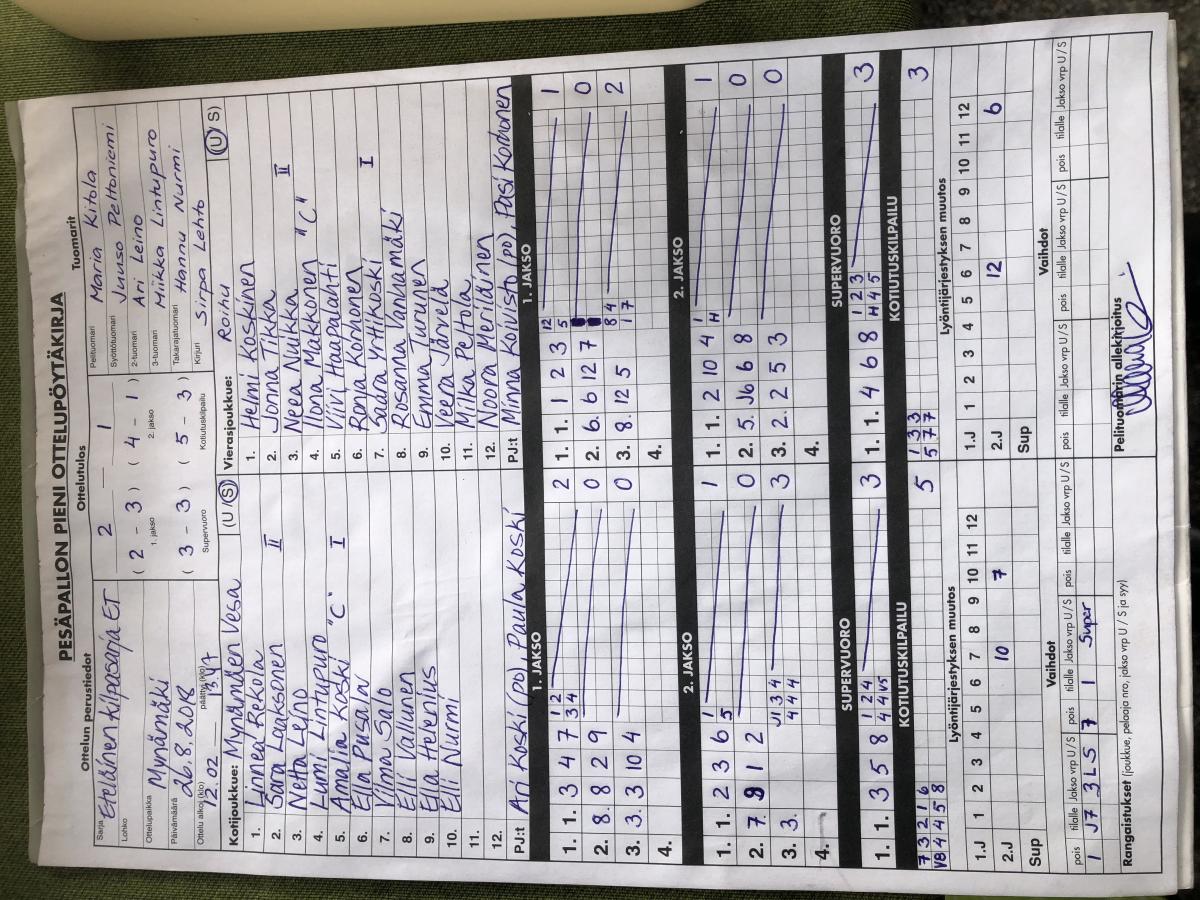 PESÄPALLON PIENI OTTELUPÖYTÄKIRJA
Ottelun perustiedot
Sarja Eteläinen kilpasarja ET
Lohko
Ottelupaikka Mynämäki
Päivämäärä 26.8.2018
Ottelu alkoi (klo) 12.02 päättyi (klo) 13.47
Ottelutulos
2 1
( 2 - 3 ) ( 4 - 1 )
1. jakso 2. jakso
( 3 - 3 ) ( 5 - 3 )
Supervuoro Kotiutuskilpailu
Tuomarit
Pelituomari Maria Kitola
Syöttötuomari Juuso Peltoniemi
2-tuomari Ari Leino
3-tuomari Miikka Lintupuro
Takarajatuomari Hannu Nurmi
Kirjuri Sirpa Lehto
Kotijoukkue: Mynämäen Vesa (U/S)
1. Linnea Rekola
2. Sara Laaksonen II
3. Netta Leino
4. Lumi Lintupuro
5. Amalia Koski "C" I
6. Ella Pusain
7. Vilma Salo
8. Elli Vallunen
9. Ella Helenius
10. Elli Nurmi
11.
12.
PJ:t Ari Koski (po), Paula Koski
Vierasjoukkue: Roihu (U/S)
1. Helmi Koskinen
2. Jonna Tikka
3. Neea Nuikka II
4. Ilona Makkonen "C"
5. Viivi Haapalahti
6. Rona Korhonen
7. Saara Yrttikoski I
8. Rosanna Vanhamäki
9. Emma Turunen
10. Veera Järvelä
11. Milka Peltola
12. Noora Meriläinen
PJ:t Minna Koivisto (po), Pasi Korhonen
1. JAKSO
1. 1. 3 4 7 1 2 2
3 4
2. 8. 8 2 9 0
3. 3. 3 10 4 0
4.
1. JAKSO
1. 1. 1 2 3 12 1
5
2. 6. 6 12 7 0
3. 8. 12 5 8 4 2
1 7
4.
2. JAKSO
1. 1. 2 3 6 1 1
5
2. 7. 9 1 2 0
3. 3. J1 3 4 3
4 4 4
4.
2. JAKSO
1. 1. 2 10 4 1 1
H
2. 5. J6 6 8 0
3. 2. 2 5 3 0
4.
SUPERVUORO
1. 1. 3 5 8 1 2 4 3
4 4 V5
SUPERVUORO
1. 1. 4 6 8 1 2 3 3
H 4 5
KOTIUTUSKILPAILU
7 3 2 1 6 5
V8 4 4 5 8
KOTIUTUSKILPAILU
1 3 3 3
5 7 7
Lyöntijärjestyksen muutos
1 2 3 4 5 6 7 8 9 10 11 12
1.J
2.J 10 7
Sup
Lyöntijärjestyksen muutos
1.J 1 2 3 4 5 6 7 8 9 10 11 12
2.J 12 6
Sup
Vaihdot
pois tilalle Jakso vrp U/S pois tilalle Jakso vrp U/S pois tilalle Jakso vrp U/S
1 J7 3 L S 7 1 Super
Vaihdot
pois tilalle Jakso vrp U/S pois tilalle Jakso vrp U/S pois tilalle Jakso vrp U/S
Rangaistukset (joukkue, pelaaja nro, jakso vrp U/S ja syy)
Pelituomarin allekirjoitus